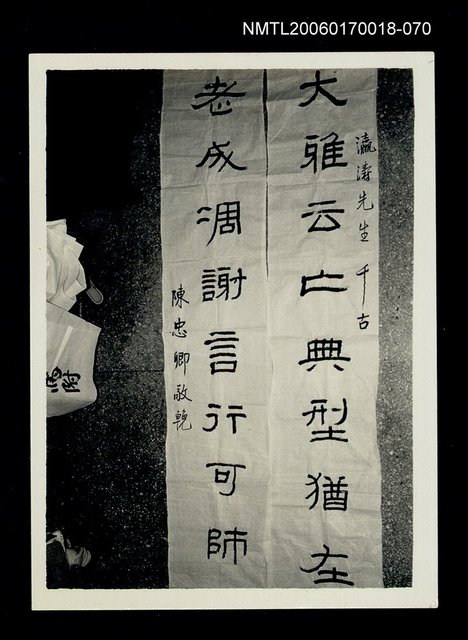 NMTL20060170018-070
瀛濤先生 千古
大雅云亡典型猶在
老成凋謝言行可師
陳忠卿敬輓